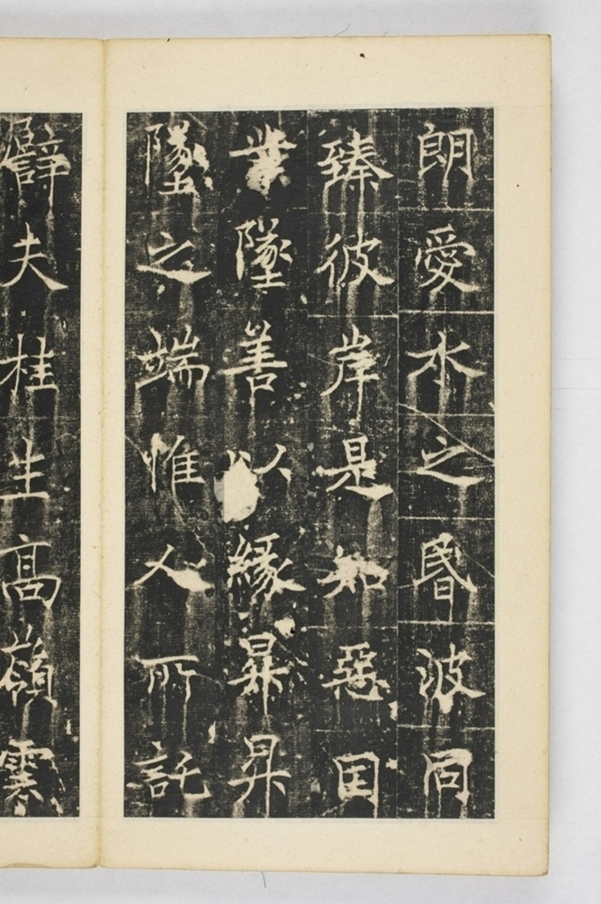 朗愛水之昬波同
臻彼岸是知惡因
業墜善以緣昇昇
墜之端惟人所託
譬夫桂生高嶺雲